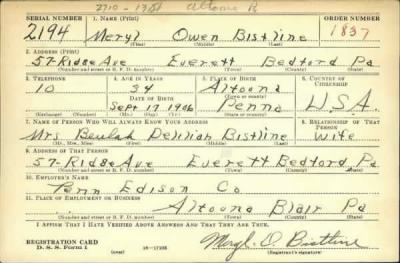 2710 - 1751 Altoona R
SERIAL NUMBER 1. NAME (Print) ORDER NUMBER
2194 Meryl Owen Bistline 1837
(First) (Middle) (Last)
2. ADDRESS (Print)
57-Ridge Ave Everett Bedford Pa
(Number and street or R. F. D. number) (Town) (County) (State)
3. TELEPHONE 4. AGE IN YEARS 5. PLACE OF BIRTH 6. COUNTRY OF CITIZENSHIP
10 34 Altoona
DATE OF BIRTH (Town or county)
Sept 17 1906 Penna U.S.A.
(Exchange) (Number) (Mo.) (Day) (Yr.) (State or country)
7. NAME OF PERSON WHO WILL ALWAYS KNOW YOUR ADDRESS 8. RELATIONSHIP OF THAT PERSON
Mrs Beulah Delilah Bistline Wife
(Mr., Mrs., Miss) (First) (Middle) (Last)
9. ADDRESS OF THAT PERSON
57-Ridge Ave Everett Bedford Pa
(Number and street or R. F. D. number) (Town) (County) (State)
10. EMPLOYER'S NAME
Penn Edison Co
11. PLACE OF EMPLOYMENT OR BUSINESS
Altoona Blair Pa
(Number and street or R. F. D. number) (Town) (County) (State)
I AFFIRM THAT I HAVE VERIFIED ABOVE ANSWERS AND THAT THEY ARE TRUE.
REGISTRATION CARD
D. S. S. Form 1 (over) 16-17105 Meryl O. Bistline
(Registrant's signature)